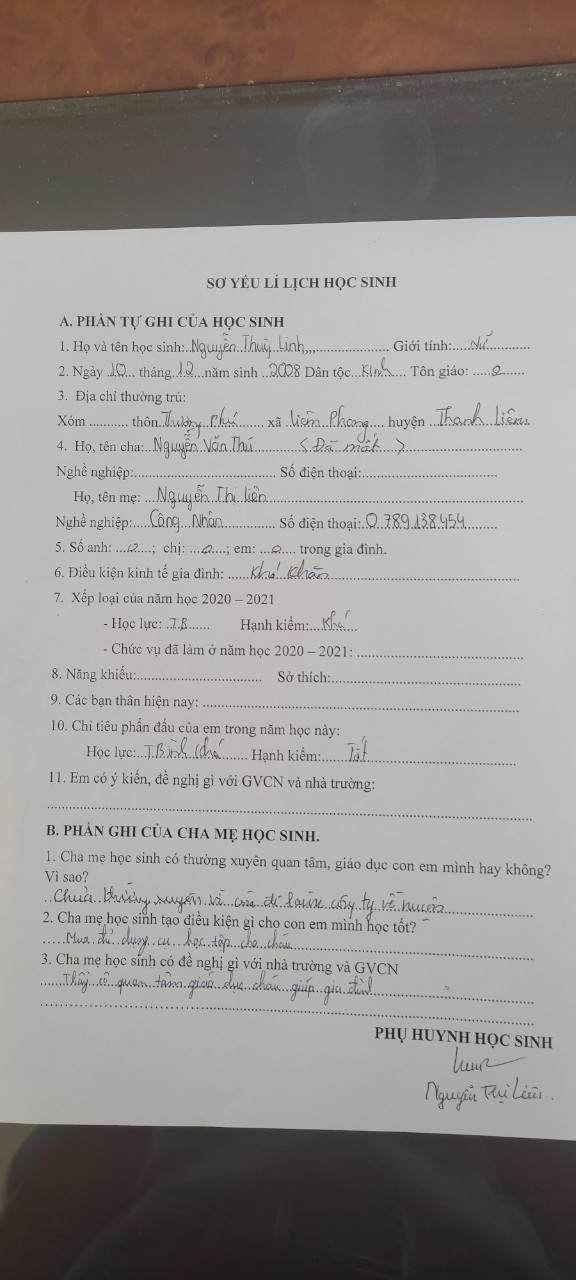 SƠ YẾU LÍ LỊCH HỌC SINH
A. PHẦN TỰ GHI CỦA HỌC SINH
1. Họ và tên học sinh: Nguyễn Thuỳ Linh Giới tính: Nữ
2. Ngày 10 tháng 12 năm sinh 2008 Dân tộc Kinh Tôn giáo: 0
3. Địa chỉ thường trú:
Xóm .......... thôn Thượng Phú xã Liêm Phong huyện Thanh Liêm
4. Họ, tên cha: Nguyễn Văn Thú < Đã mất >
Nghề nghiệp:.......... Số điện thoại:..........
Họ, tên mẹ: Nguyễn Thị liên
Nghề nghiệp: Công Nhân Số điện thoại: 0.789.138.454
5. Số anh: 0; chị: 0; em: 0 trong gia đình.
6. Điều kiện kinh tế gia đình: Khó khăn
7. Xếp loại của năm học 2020 – 2021
- Học lực: T.B Hạnh kiểm: Khá
- Chức vụ đã làm ở năm học 2020 – 2021: ..........
8. Năng khiếu:.......... Sở thích:..........
9. Các bạn thân hiện nay: ..........
10. Chỉ tiêu phấn đấu của em trong năm học này:
Học lực: T.Bình Khá Hạnh kiểm: Tốt
11. Em có ý kiến, đề nghị gì với GVCN và nhà trường:
B. PHẦN GHI CỦA CHA MẸ HỌC SINH.
1. Cha mẹ học sinh có thường xuyên quan tâm, giáo dục con em mình hay không?
Vì sao?
Chưa thường xuyên vì còn đi công ty về muộn
2. Cha mẹ học sinh tạo điều kiện gì cho con em mình học tốt?
Mua đủ dụng cụ học tập cho cháu
3. Cha mẹ học sinh có đề nghị gì với nhà trường và GVCN
Thầy cô quan tâm giáo dục cháu giúp gia đình
PHỤ HUYNH HỌC SINH
Nguyễn Thị Liên.